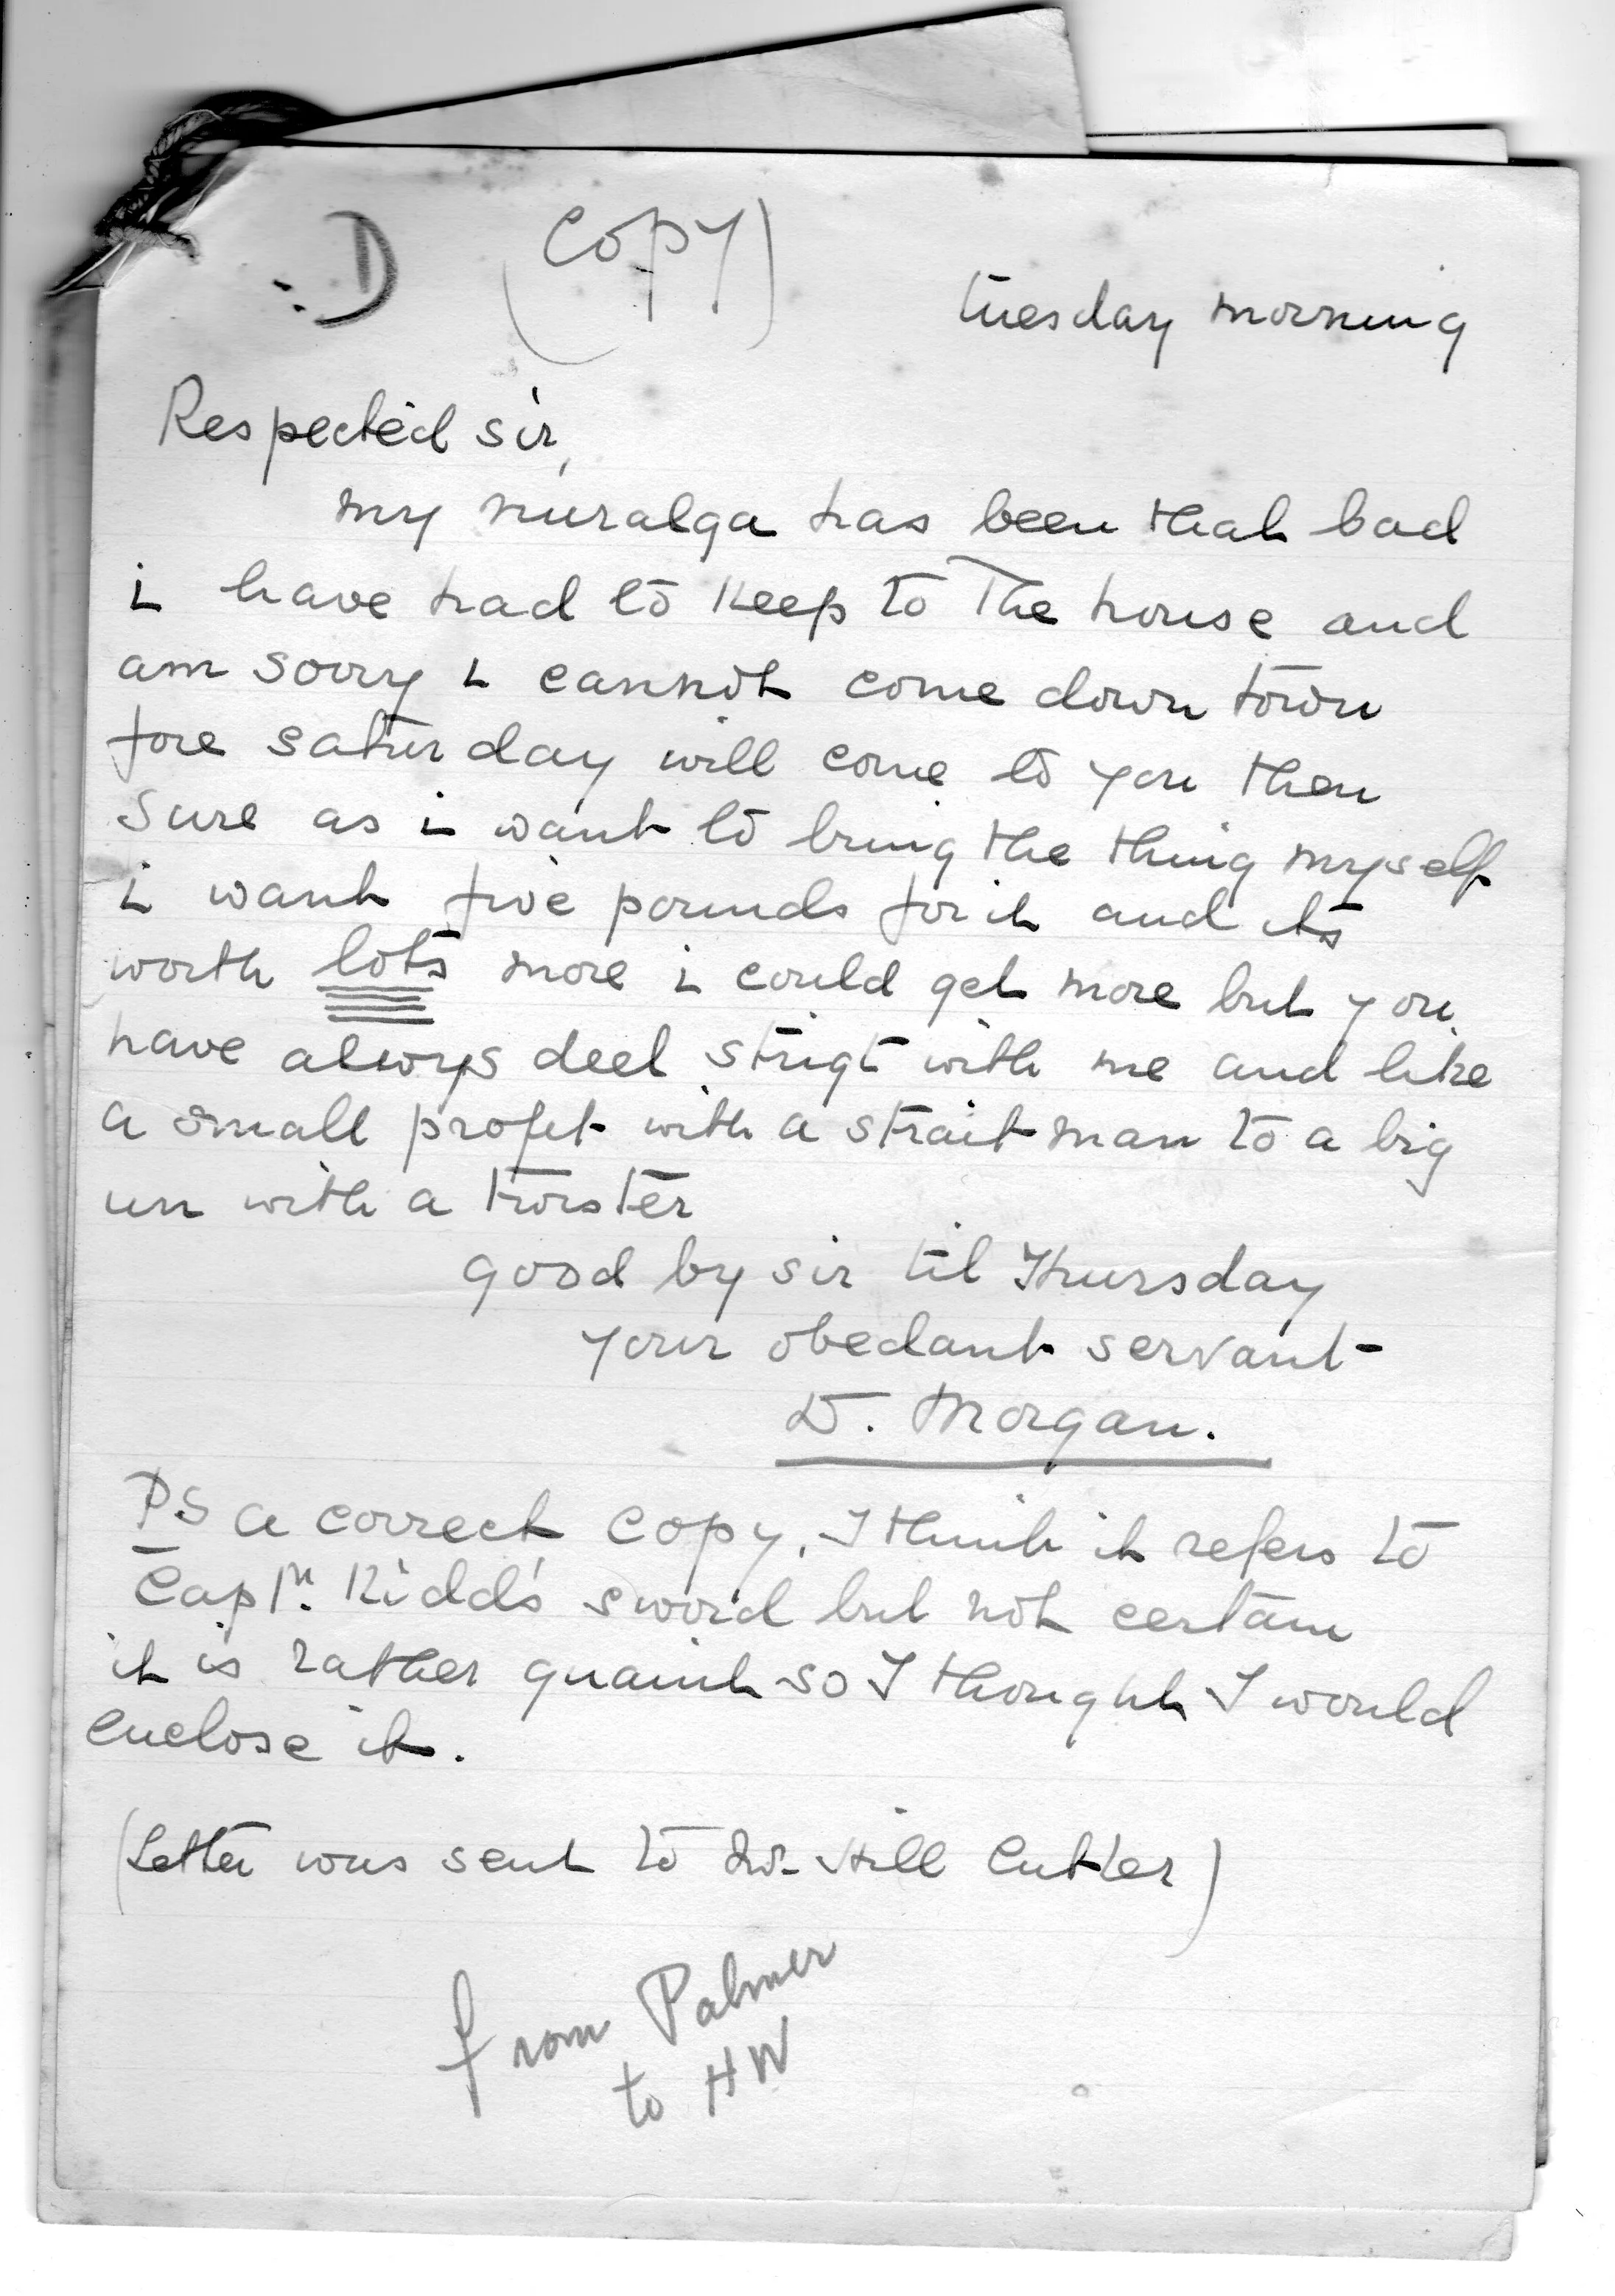 D (Copy)
tuesday morning
Respected sir,
my nuralga has been that bad
i have had to keep to The house and
am sorry i cannot come down town
fore saturday will come to you then
sure as i want to bring the thing myself
i want five pounds for it and its
worth lots more i could get more but you
have alwys deel strigt with me and like
a small profet with a strait man to a big
un with a twister
good by sir til Thursday
your obedant servant
D. Morgan.
PS a correct copy, I think it refers to
Captn. Kidd's sword but not certain
it is rather quaint so I thought I would
enclose it.
(Letter was sent to Mr Hill Cutler)
from Palmer
to HW